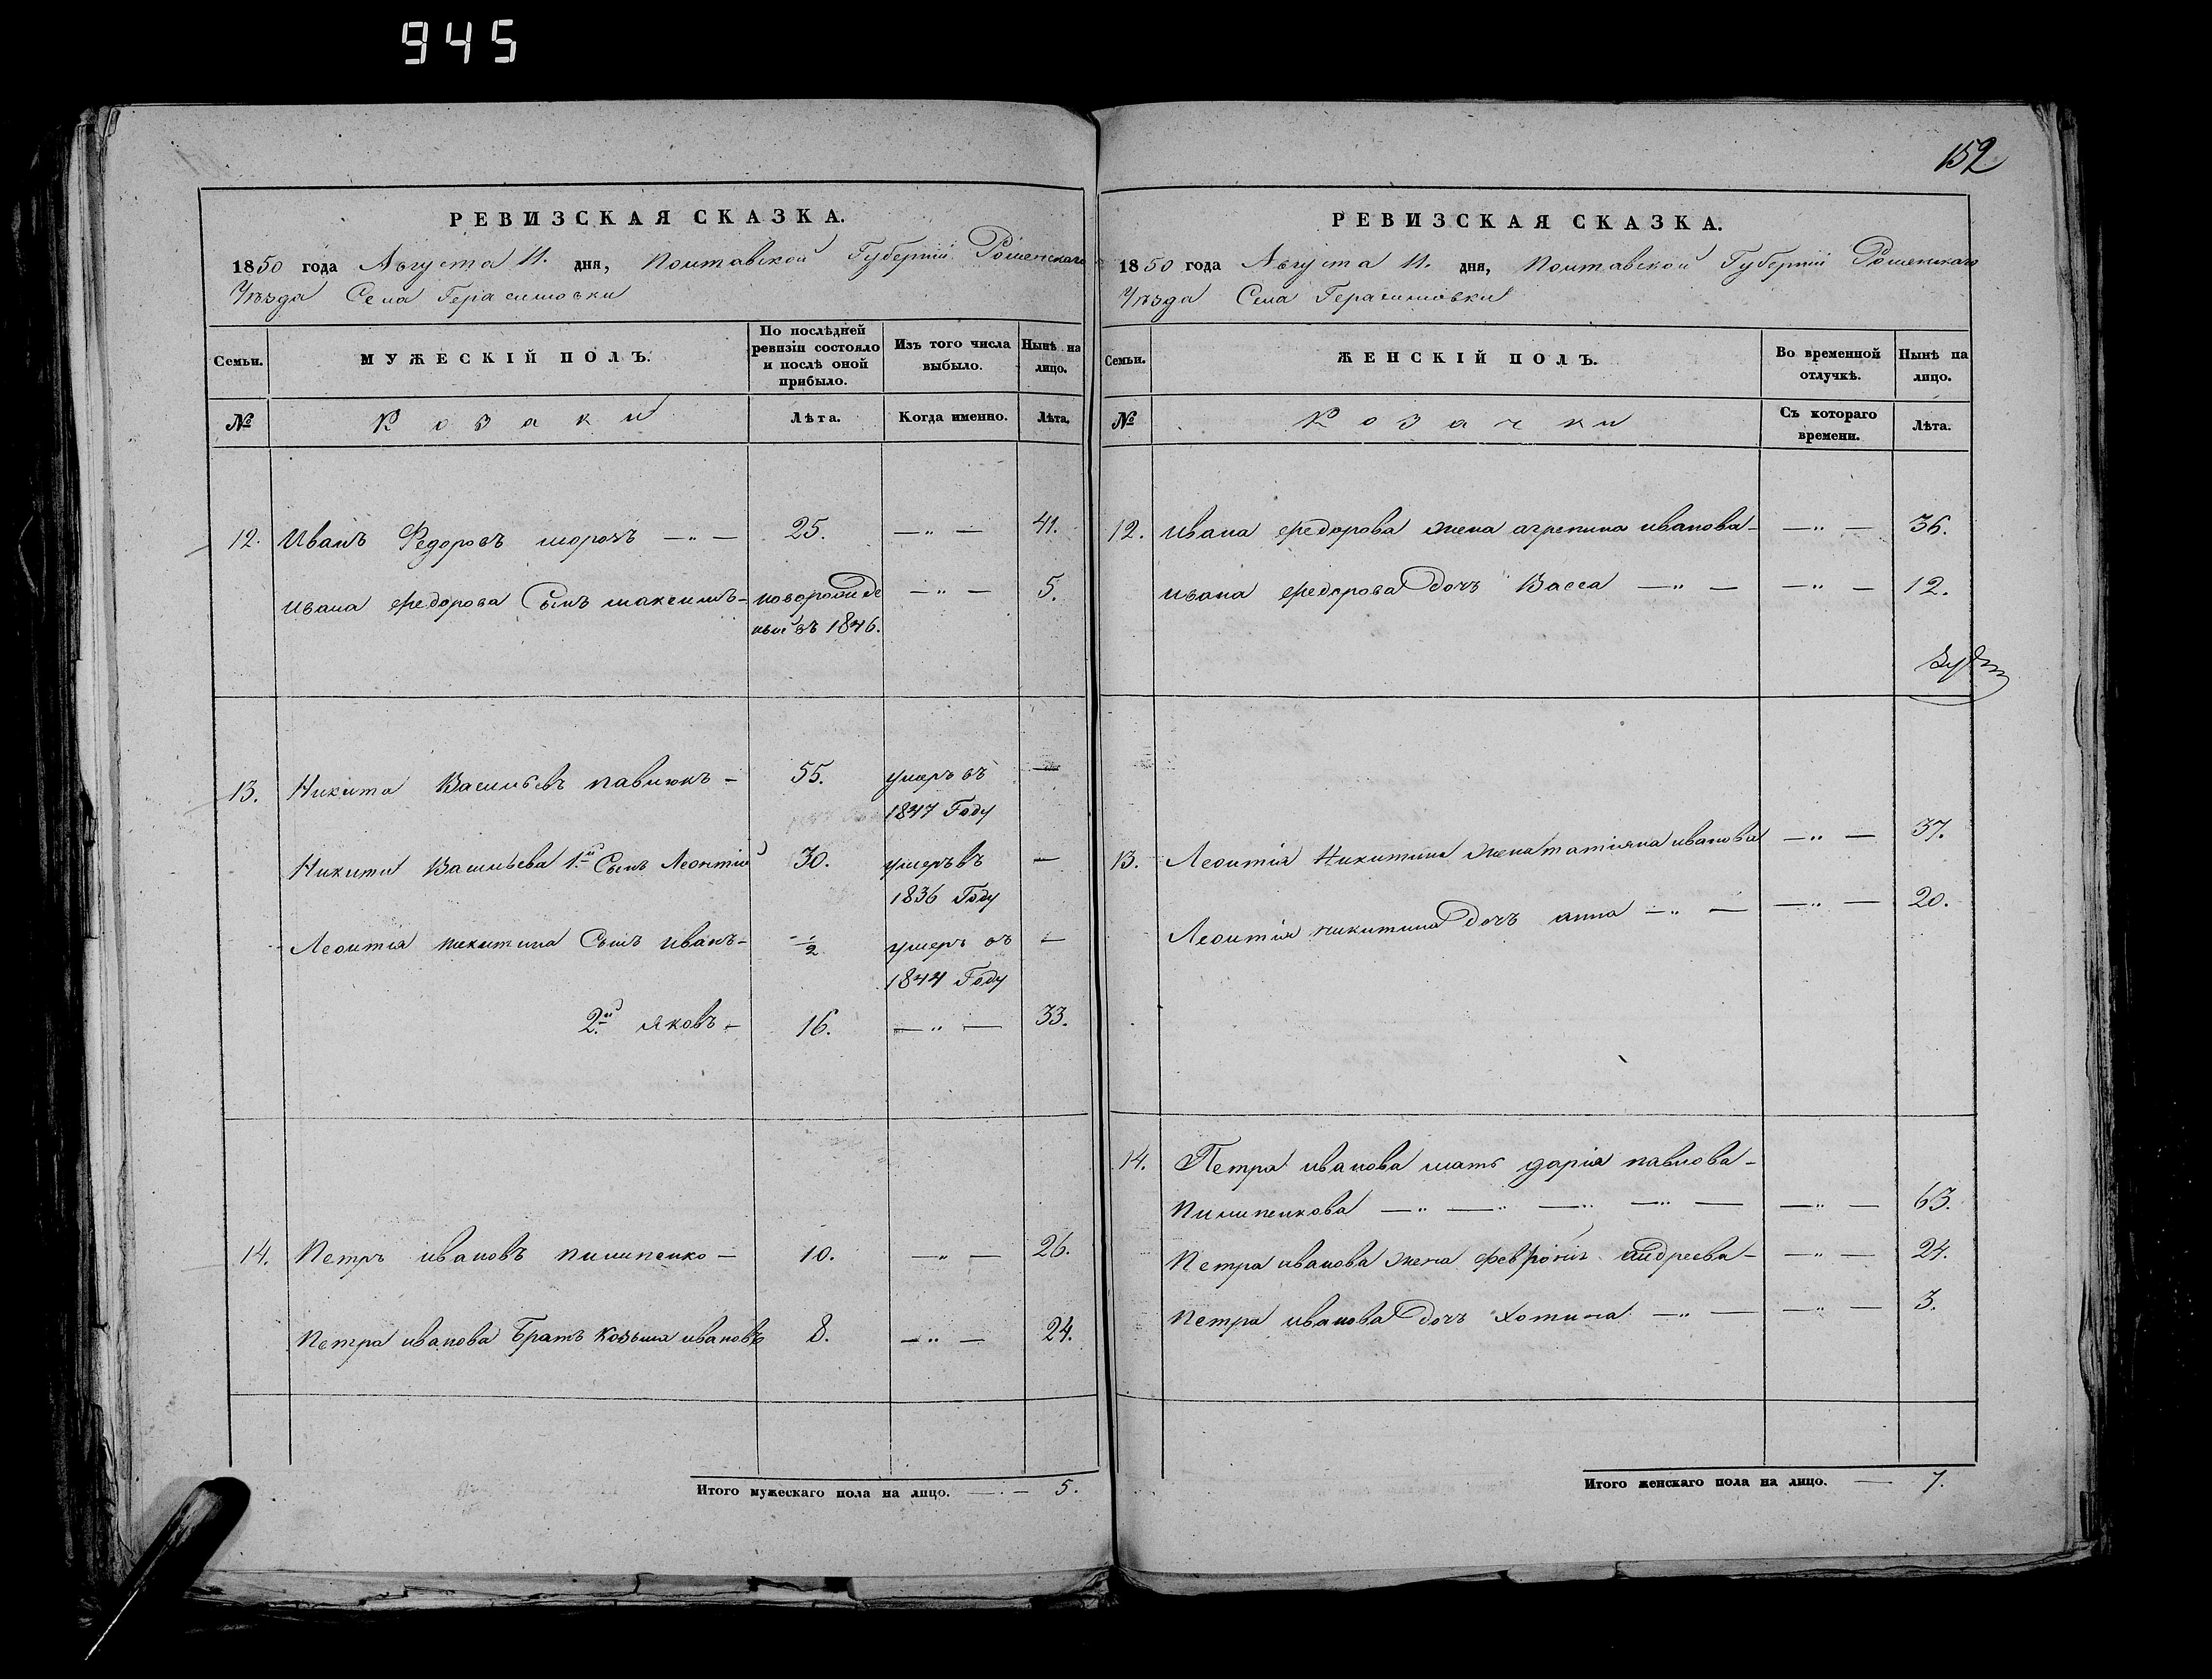 945
152
РЕВИЗСКАЯ СКАЗКА.
1850 года Августа 11. дня, Полтавской Губерніи Роменскаго
Уѣзда Села Герасимовки
Семьи.
МУЖЕСКІЙ ПОЛЪ.
По послѣдней ревизіи состояло и послѣ оной прибыло.
Изъ того числа выбыло.
Нынѣ на лицо.
№
Козаки
Лѣта.
Когда именно.
Лѣта.
12. Иванъ Федоровъ морозъ — „ — 25. — „ — 41.
ивана федорова Сынъ максимъ — новорожде — „ — 5.
ный въ 1846.
13. Никита Васильевъ павлюкъ — 55. умеръ въ —
1847 Году
Никиты Васильева 1й Сынъ Леонтий 30. умеръ въ —
1836 Году
Леонтия никитина Сынъ иванъ — ½ умеръ въ —
1844 Году
2й яковъ — 16. — „ — 33.
14. Петръ ивановъ пилипенко — 10. — „ — 26.
Петра иванова Братъ Козьма ивановъ 8. — „ — 24.
Итого мужескаго пола на лицо. — 5.
РЕВИЗСКАЯ СКАЗКА.
1850 года Августа 11. дня, Полтавской Губерніи Роменскаго
Уѣзда Села Герасимовки
Семьи.
ЖЕНСКІЙ ПОЛЪ.
Во временной отлучкѣ.
Нынѣ на лицо.
№
Козачки
Съ котораго времени.
Лѣта.
12. ивана федорова жена агрепина иванова — — „ — 36.
ивана федорова дочь Васса — „ — — „ — 12.
13. Леонтия Никитина жена татияна иванова — „ — 37.
Леонтия никитина дочь анна — „ — — „ — 20.
14. Петра иванова мать дария павлова —
Пилипенкова — „ — „ — „ — „ — — „ — 63.
Петра иванова жена феврония андреева — — „ — 24.
Петра иванова дочь хотина — „ — — „ — 3.
Итого женскаго пола на лицо. — 7.